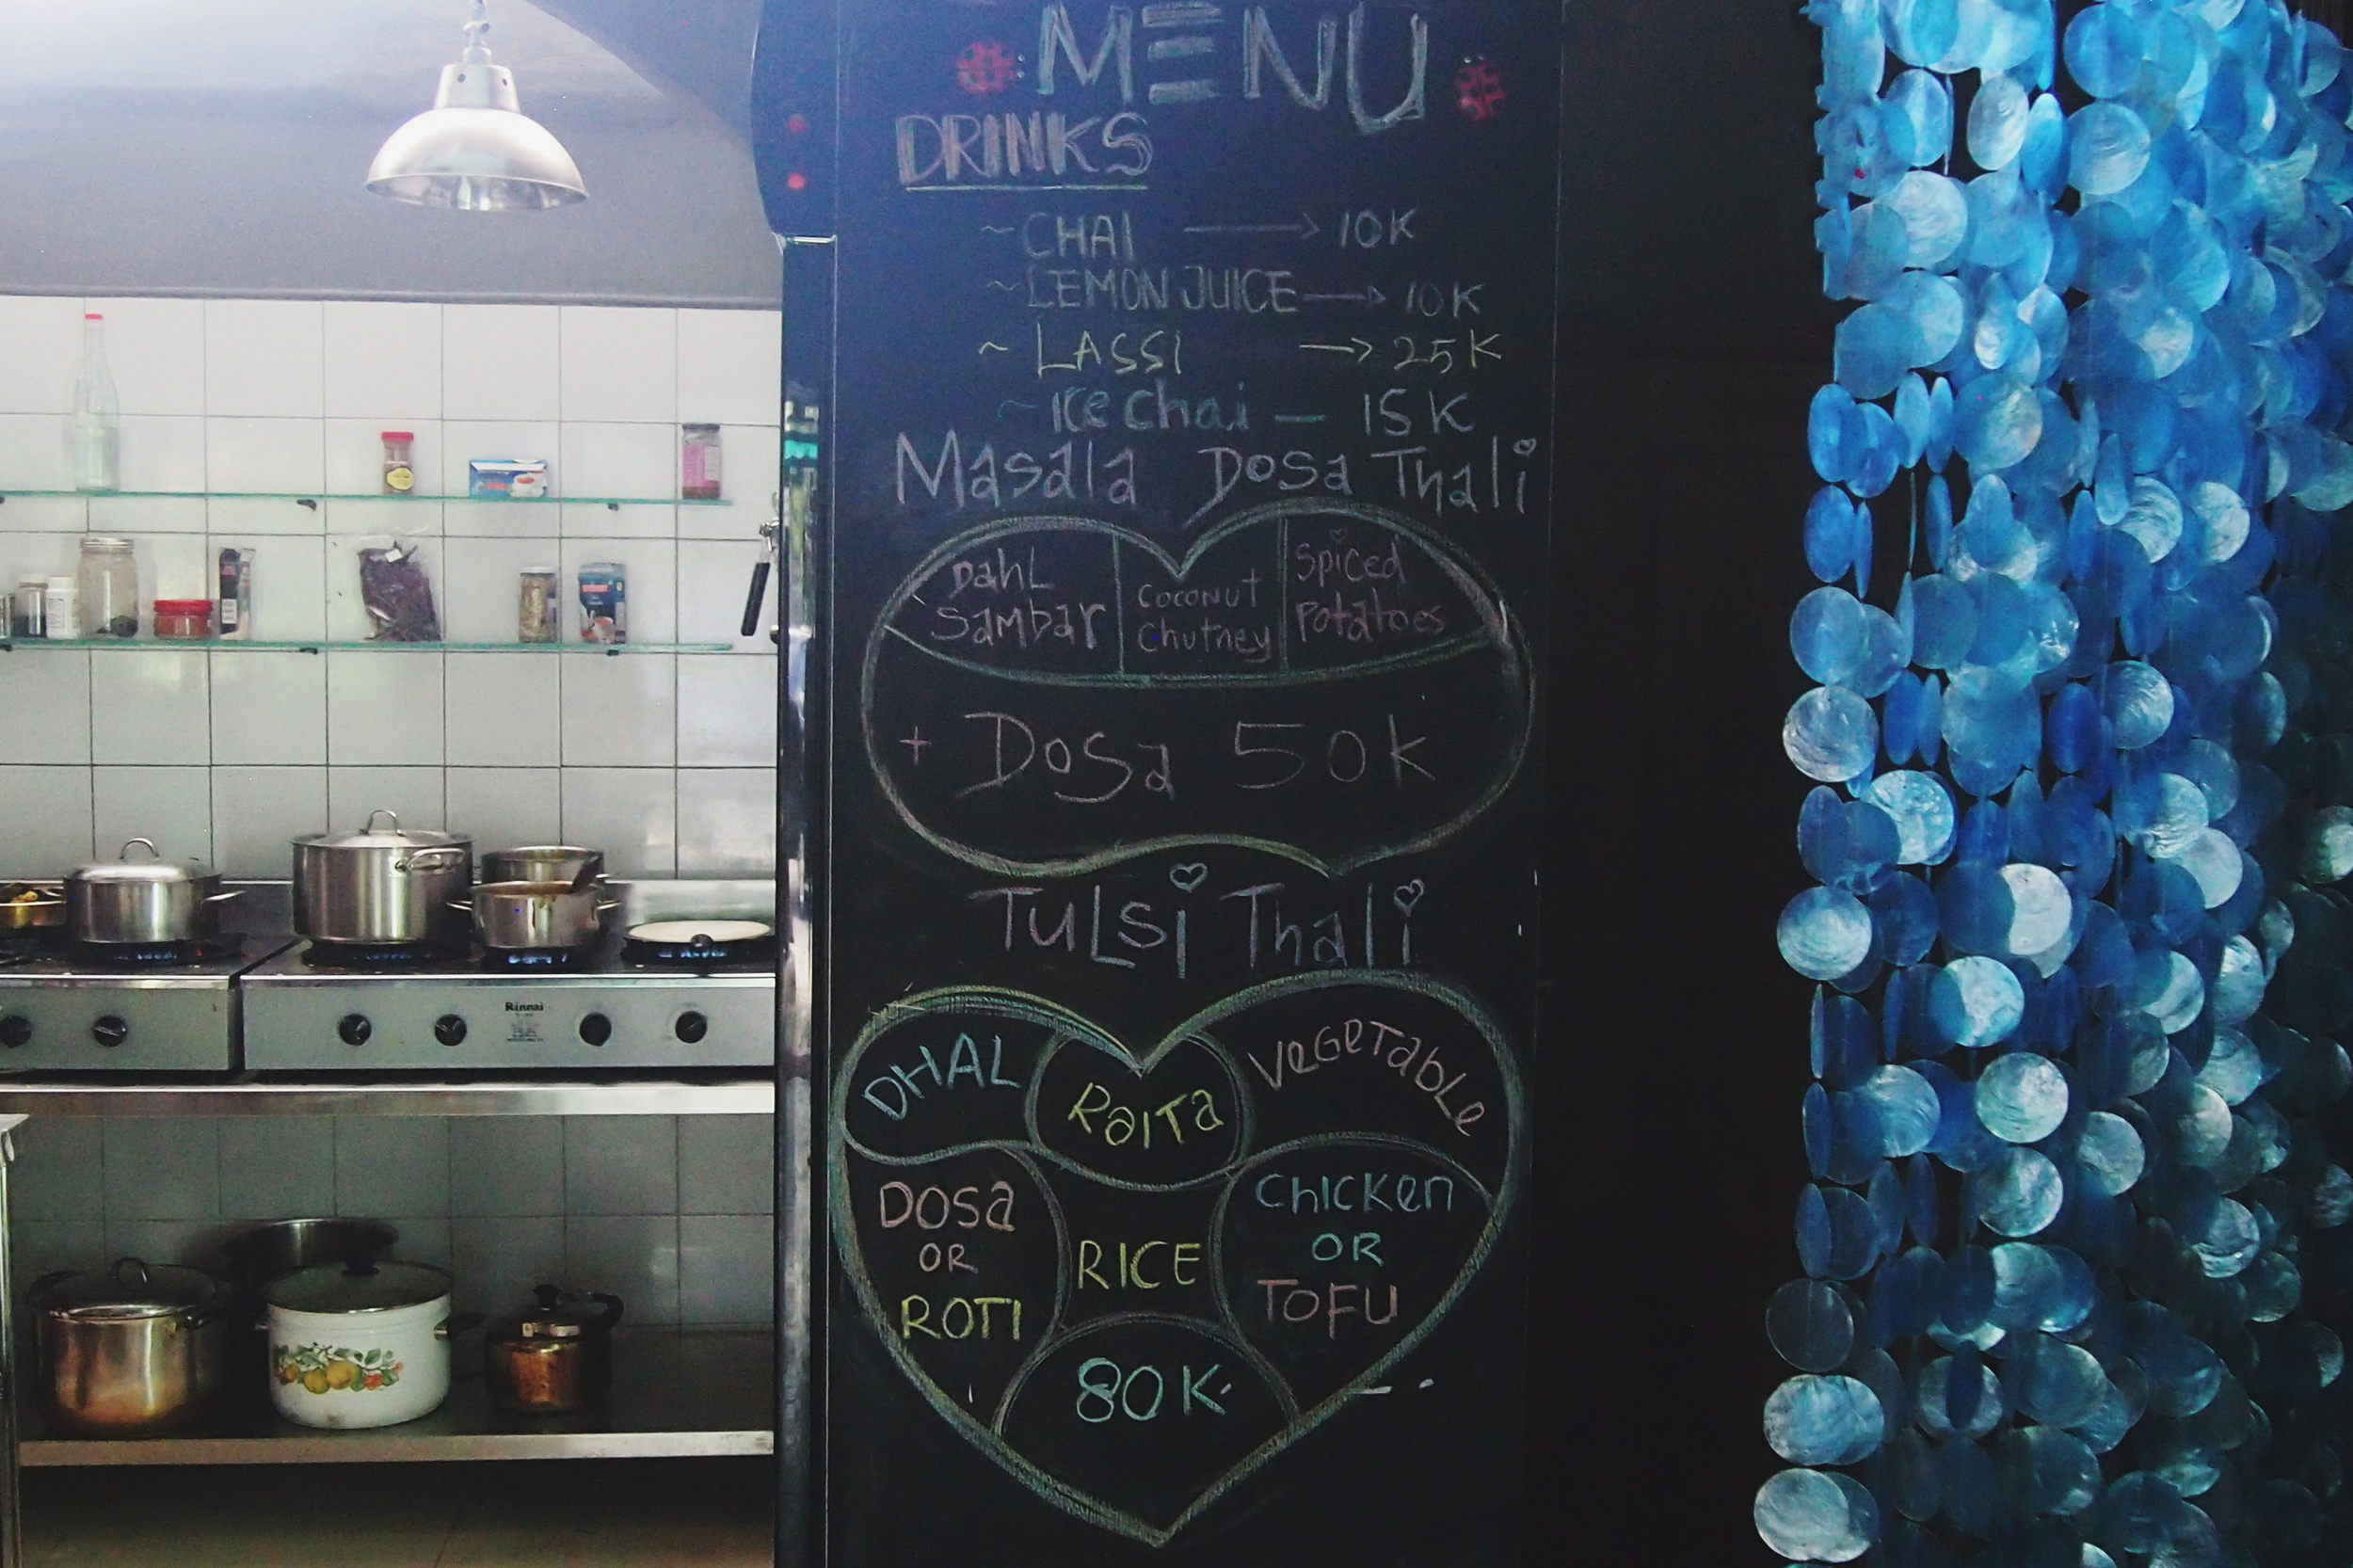 MENU
DRINKS
~ CHAI → 10K
~ LEMON JUICE → 10K
~ LASSI → 25K
~ Ice chai — 15K
Masala Dosa Thali
Dahl
Sambar
Coconut
Chutney
Spiced
Potatoes
+ Dosa 50K
Tulsi Thali
DHAL
RaiTa
VeGeTabLe
DOSa
OR
ROTI
RICE
ChICKen
OR
TOFU
80K
Rinnai